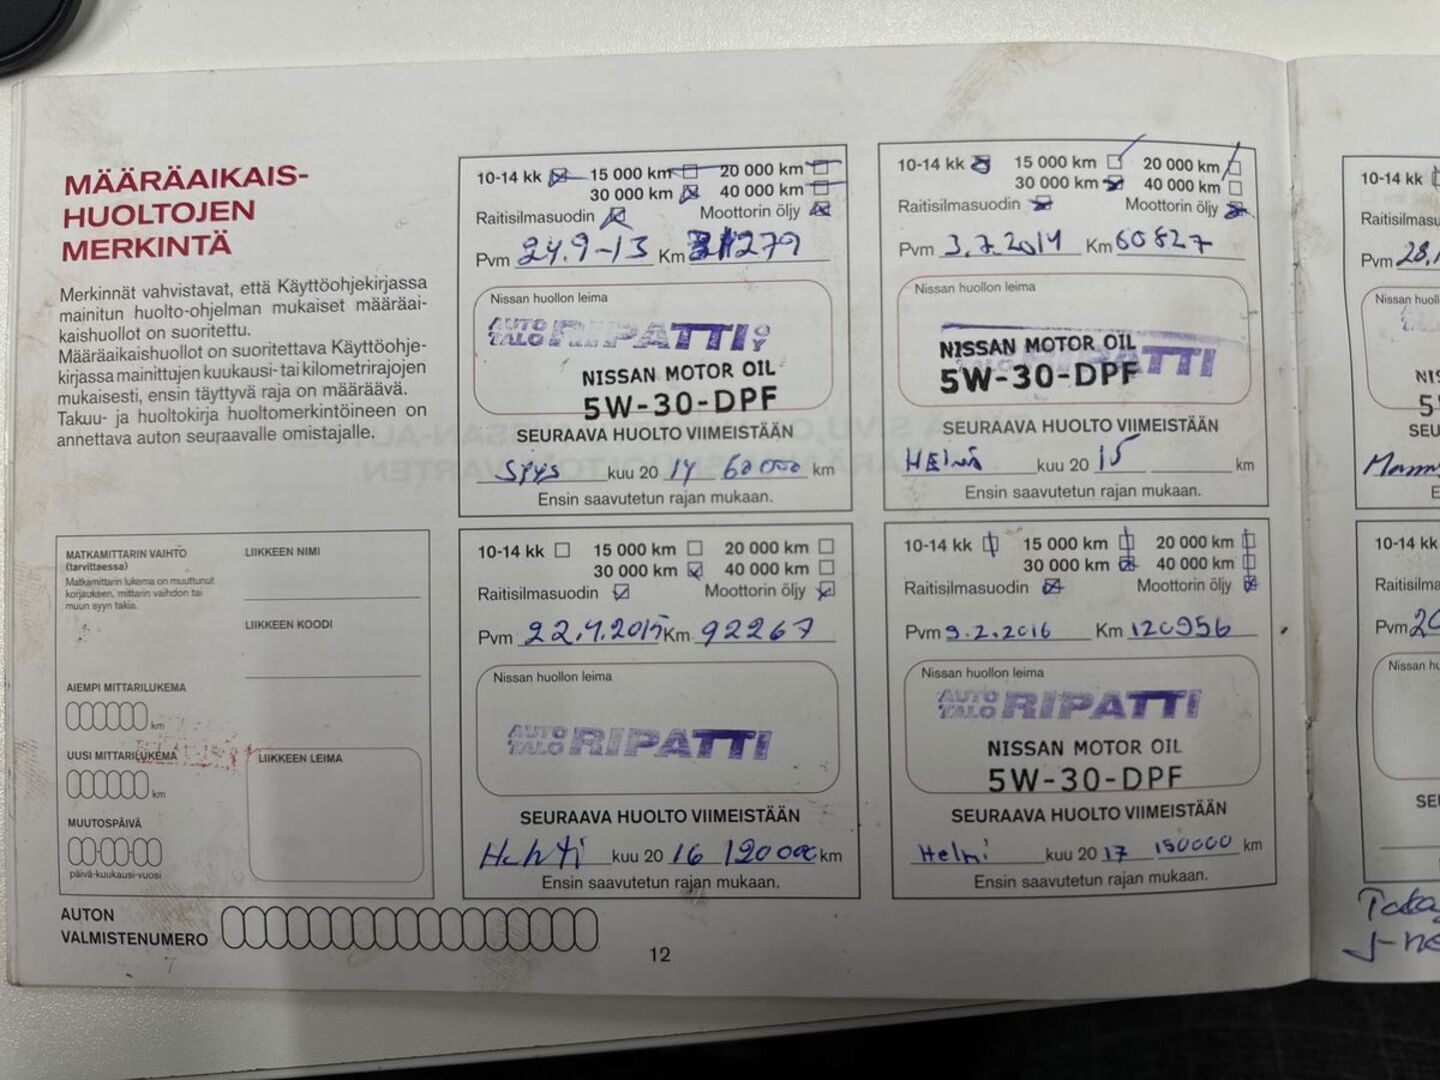 MÄÄRÄAIKAIS-
HUOLTOJEN
MERKINTÄ
Merkinnät vahvistavat, että Käyttöohjekirjassa
mainitun huolto-ohjelman mukaiset määräai-
kaishuollot on suoritettu.
Määräaikaishuollot on suoritettava Käyttöohje-
kirjassa mainittujen kuukausi- tai kilometrirajojen
mukaisesti, ensin täyttyvä raja on määräävä.
Takuu- ja huoltokirja huoltomerkintöineen on
annettava auton seuraavalle omistajalle.
MATKAMITTARIN VAIHTO
(tarvittaessa)
Matkamittarin lukema on muuttunut
korjauksen, mittarin vaihdon tai
muun syyn takia.
LIIKKEEN NIMI
LIIKKEEN KOODI
AIEMPI MITTARILUKEMA
km
UUSI MITTARILUKEMA
km
LIIKKEEN LEIMA
MUUTOSPÄIVÄ
päivä-kuukausi-vuosi
AUTON
VALMISTENUMERO
10-14 kk 15 000 km 20 000 km
30 000 km 40 000 km
Raitisilmasuodin Moottorin öljy
Pvm 24.9-13 Km 31279
Nissan huollon leima
AUTO TALO RIPATTI OY
NISSAN MOTOR OIL
5W-30-DPF
SEURAAVA HUOLTO VIIMEISTÄÄN
Syys kuu 20 14 60000 km
Ensin saavutetun rajan mukaan.
10-14 kk 15 000 km 20 000 km
30 000 km 40 000 km
Raitisilmasuodin Moottorin öljy
Pvm 3.7.2014 Km 60827
Nissan huollon leima
NISSAN MOTOR OIL
5W-30-DPF
SEURAAVA HUOLTO VIIMEISTÄÄN
kuu 20 15 km
Ensin saavutetun rajan mukaan.
10-14 kk 15 000 km 20 000 km
30 000 km 40 000 km
Raitisilmasuodin Moottorin öljy
Pvm 22.4.2015 Km 92267
Nissan huollon leima
AUTO TALO RIPATTI
SEURAAVA HUOLTO VIIMEISTÄÄN
Huhti kuu 20 16 120000 km
Ensin saavutetun rajan mukaan.
10-14 kk 15 000 km 20 000 km
30 000 km 40 000 km
Raitisilmasuodin Moottorin öljy
Pvm 9.2.2016 Km 120956
Nissan huollon leima
AUTO TALO RIPATTI
NISSAN MOTOR OIL
5W-30-DPF
SEURAAVA HUOLTO VIIMEISTÄÄN
Helmi kuu 20 17 150000 km
Ensin saavutetun rajan mukaan.
12
10-14 kk
Pvm 28.
10-14 kk
Pvm 20